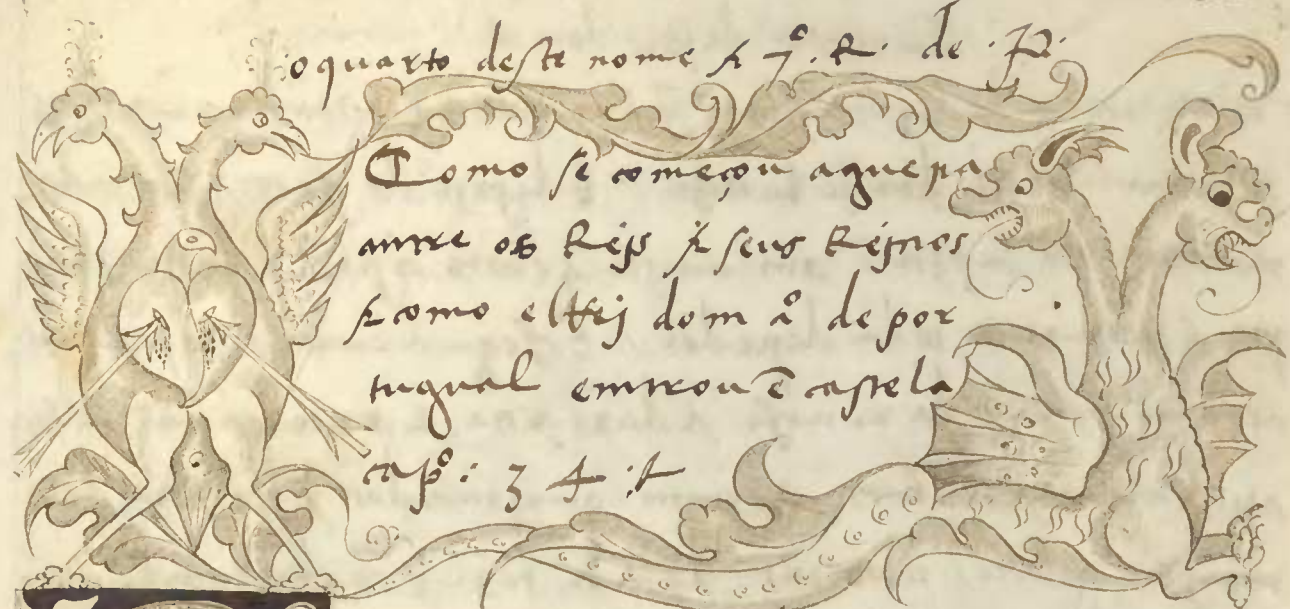 oquarto deste nome & 7º. R. de .P.
Como se começou aguerra
antre os Reis & seus Reinos
& como elRej dom aº de por
tugual emtrou ẽ castela
capº: 34 :&